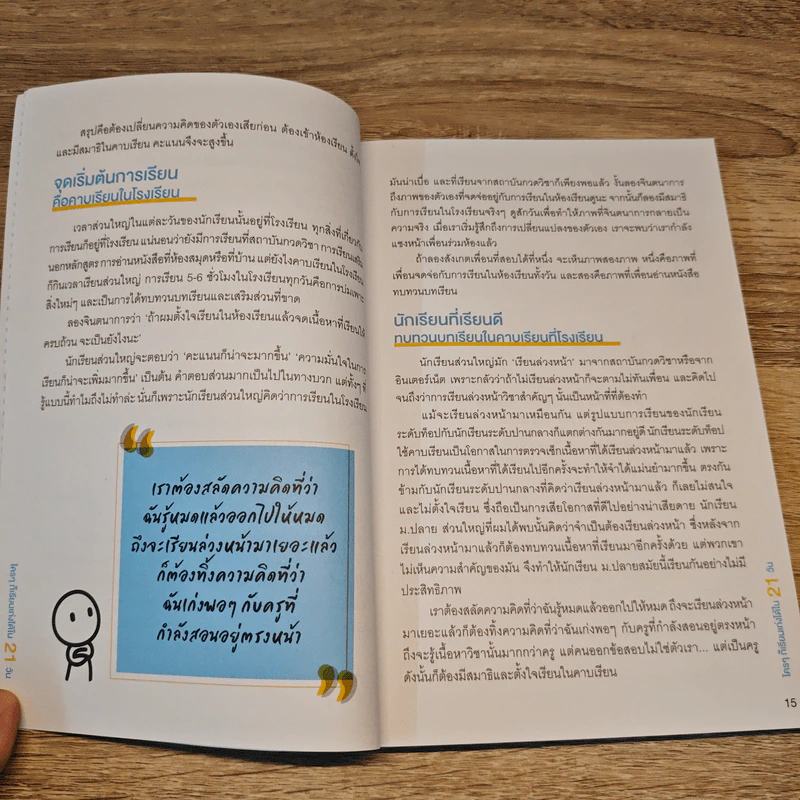 สรุปคือต้องเปลี่ยนความคิดของตัวเองเสียก่อน ต้องเข้าห้องเรียน ตั้งใจ
และมีสมาธิในคาบเรียน คะแนนจึงจะสูงขึ้น
จุดเริ่มต้นการเรียน
คือคาบเรียนในโรงเรียน
เวลาส่วนใหญ่ในแต่ละวันของนักเรียนนั้นอยู่ที่โรงเรียน ทุกสิ่งที่เกี่ยวกับ
การเรียนก็อยู่ที่โรงเรียน แน่นอนว่ายังมีการเรียนที่สถาบันกวดวิชา การเรียนเสริม
นอกหลักสูตร การอ่านหนังสือที่ห้องสมุดหรือที่บ้าน แต่ยังไงคาบเรียนในโรงเรียน
ก็กินเวลาเรียนส่วนใหญ่ การเรียน 5-6 ชั่วโมงในโรงเรียนทุกวันคือการบ่มเพาะ
สิ่งใหม่ๆ และเป็นการได้ทบทวนบทเรียนและเสริมส่วนที่ขาด
ลองจินตนาการว่า ‘ถ้าผมตั้งใจเรียนในห้องเรียนแล้วจดเนื้อหาที่เรียนได้
ครบถ้วน จะเป็นยังไงนะ’
นักเรียนส่วนใหญ่จะตอบว่า ‘คะแนนก็น่าจะมากขึ้น’ ‘ความมั่นใจในการ
เรียนก็น่าจะเพิ่มมากขึ้น’ เป็นต้น คำตอบส่วนมากเป็นไปในทางบวก แต่ทั้งๆ ที่
รู้แบบนี้ทำไมถึงไม่ทำล่ะ นั่นก็เพราะนักเรียนส่วนใหญ่คิดว่าการเรียนในโรงเรียน
เราต้องสลัดความคิดที่ว่า
ฉันรู้หมดแล้วออกไปให้หมด
ถึงจะเรียนล่วงหน้ามาเยอะแล้ว
ก็ต้องทิ้งความคิดที่ว่า
ฉันเก่งพอๆ กับครูที่
กำลังสอนอยู่ตรงหน้า
ใครๆ ก็เรียนเก่งได้ใน 21 วัน
มันน่าเบื่อ และที่เรียนจากสถาบันกวดวิชาก็เพียงพอแล้ว งั้นลองจินตนาการ
ถึงภาพของตัวเองที่จดจ่ออยู่กับการเรียนในห้องเรียนดูนะ จากนั้นก็ลองมีสมาธิ
กับการเรียนในโรงเรียนจริงๆ ดูสักวันเพื่อทำให้ภาพที่จินตนาการกลายเป็น
ความจริง เมื่อเราเริ่มรู้สึกถึงการเปลี่ยนแปลงของตัวเอง เราจะพบว่าเรากำลัง
แซงหน้าเพื่อนร่วมห้องแล้ว
ถ้าลองสังเกตเพื่อนที่สอบได้ที่หนึ่ง จะเห็นภาพสองภาพ หนึ่งคือภาพที่
เพื่อนจดจ่อกับการเรียนในห้องทั้งวัน และสองคือภาพที่เพื่อนอ่านหนังสือ
ทบทวนบทเรียน
นักเรียนที่เรียนดี
ทบทวนบทเรียนในคาบเรียนที่โรงเรียน
นักเรียนส่วนใหญ่มัก ‘เรียนล่วงหน้า’ มาจากสถาบันกวดวิชาหรือจาก
อินเตอร์เน็ต เพราะกลัวว่าถ้าไม่เรียนล่วงหน้าก็จะตามไม่ทันเพื่อน และคิดไป
จนถึงว่าการเรียนล่วงหน้าวิชาสำคัญๆ นั้นเป็นหน้าที่ที่ต้องทำ
แม้จะเรียนล่วงหน้ามาเหมือนกัน แต่รูปแบบการเรียนของนักเรียน
ระดับท็อปกับนักเรียนระดับปานกลางก็แตกต่างกันมากอยู่ดี นักเรียนระดับท็อป
ใช้คาบเรียนเป็นโอกาสในการตรวจเช็กเนื้อหาที่ได้เรียนล่วงหน้ามาแล้ว เพราะ
การได้ทบทวนเนื้อหาที่ได้เรียนไปอีกครั้งจะทำให้จำได้แม่นยำมากขึ้น ตรงกัน
ข้ามกับนักเรียนระดับปานกลางที่คิดว่าเรียนล่วงหน้ามาแล้ว ก็เลยไม่สนใจ
และไม่ตั้งใจเรียน ซึ่งถือเป็นการเสียโอกาสที่ดีไปอย่างน่าเสียดาย นักเรียน
ม.ปลาย ส่วนใหญ่ที่ผมได้พบนั้นคิดว่าจำเป็นต้องเรียนล่วงหน้า ซึ่งหลังจาก
เรียนล่วงหน้ามาแล้วก็ต้องทบทวนเนื้อหาที่เรียนมาอีกครั้งด้วย แต่พวกเขา
ไม่เห็นความสำคัญของมัน จึงทำให้นักเรียน ม.ปลายสมัยนี้เรียนกันอย่างไม่มี
ประสิทธิภาพ
เราต้องสลัดความคิดที่ว่าฉันรู้หมดแล้วออกไปให้หมด ถึงจะเรียนล่วงหน้า
มาเยอะแล้วก็ต้องทิ้งความคิดที่ว่าฉันเก่งพอๆ กับครูที่กำลังสอนอยู่ตรงหน้า
ถึงจะรู้เนื้อหาวิชานั้นมากกว่าครู แต่คนออกข้อสอบไม่ใช่ตัวเรา... แต่เป็นครู
ดังนั้นก็ต้องมีสมาธิและตั้งใจเรียนในคาบเรียน
ใครๆ ก็เรียนเก่งได้ใน 21 วัน
15